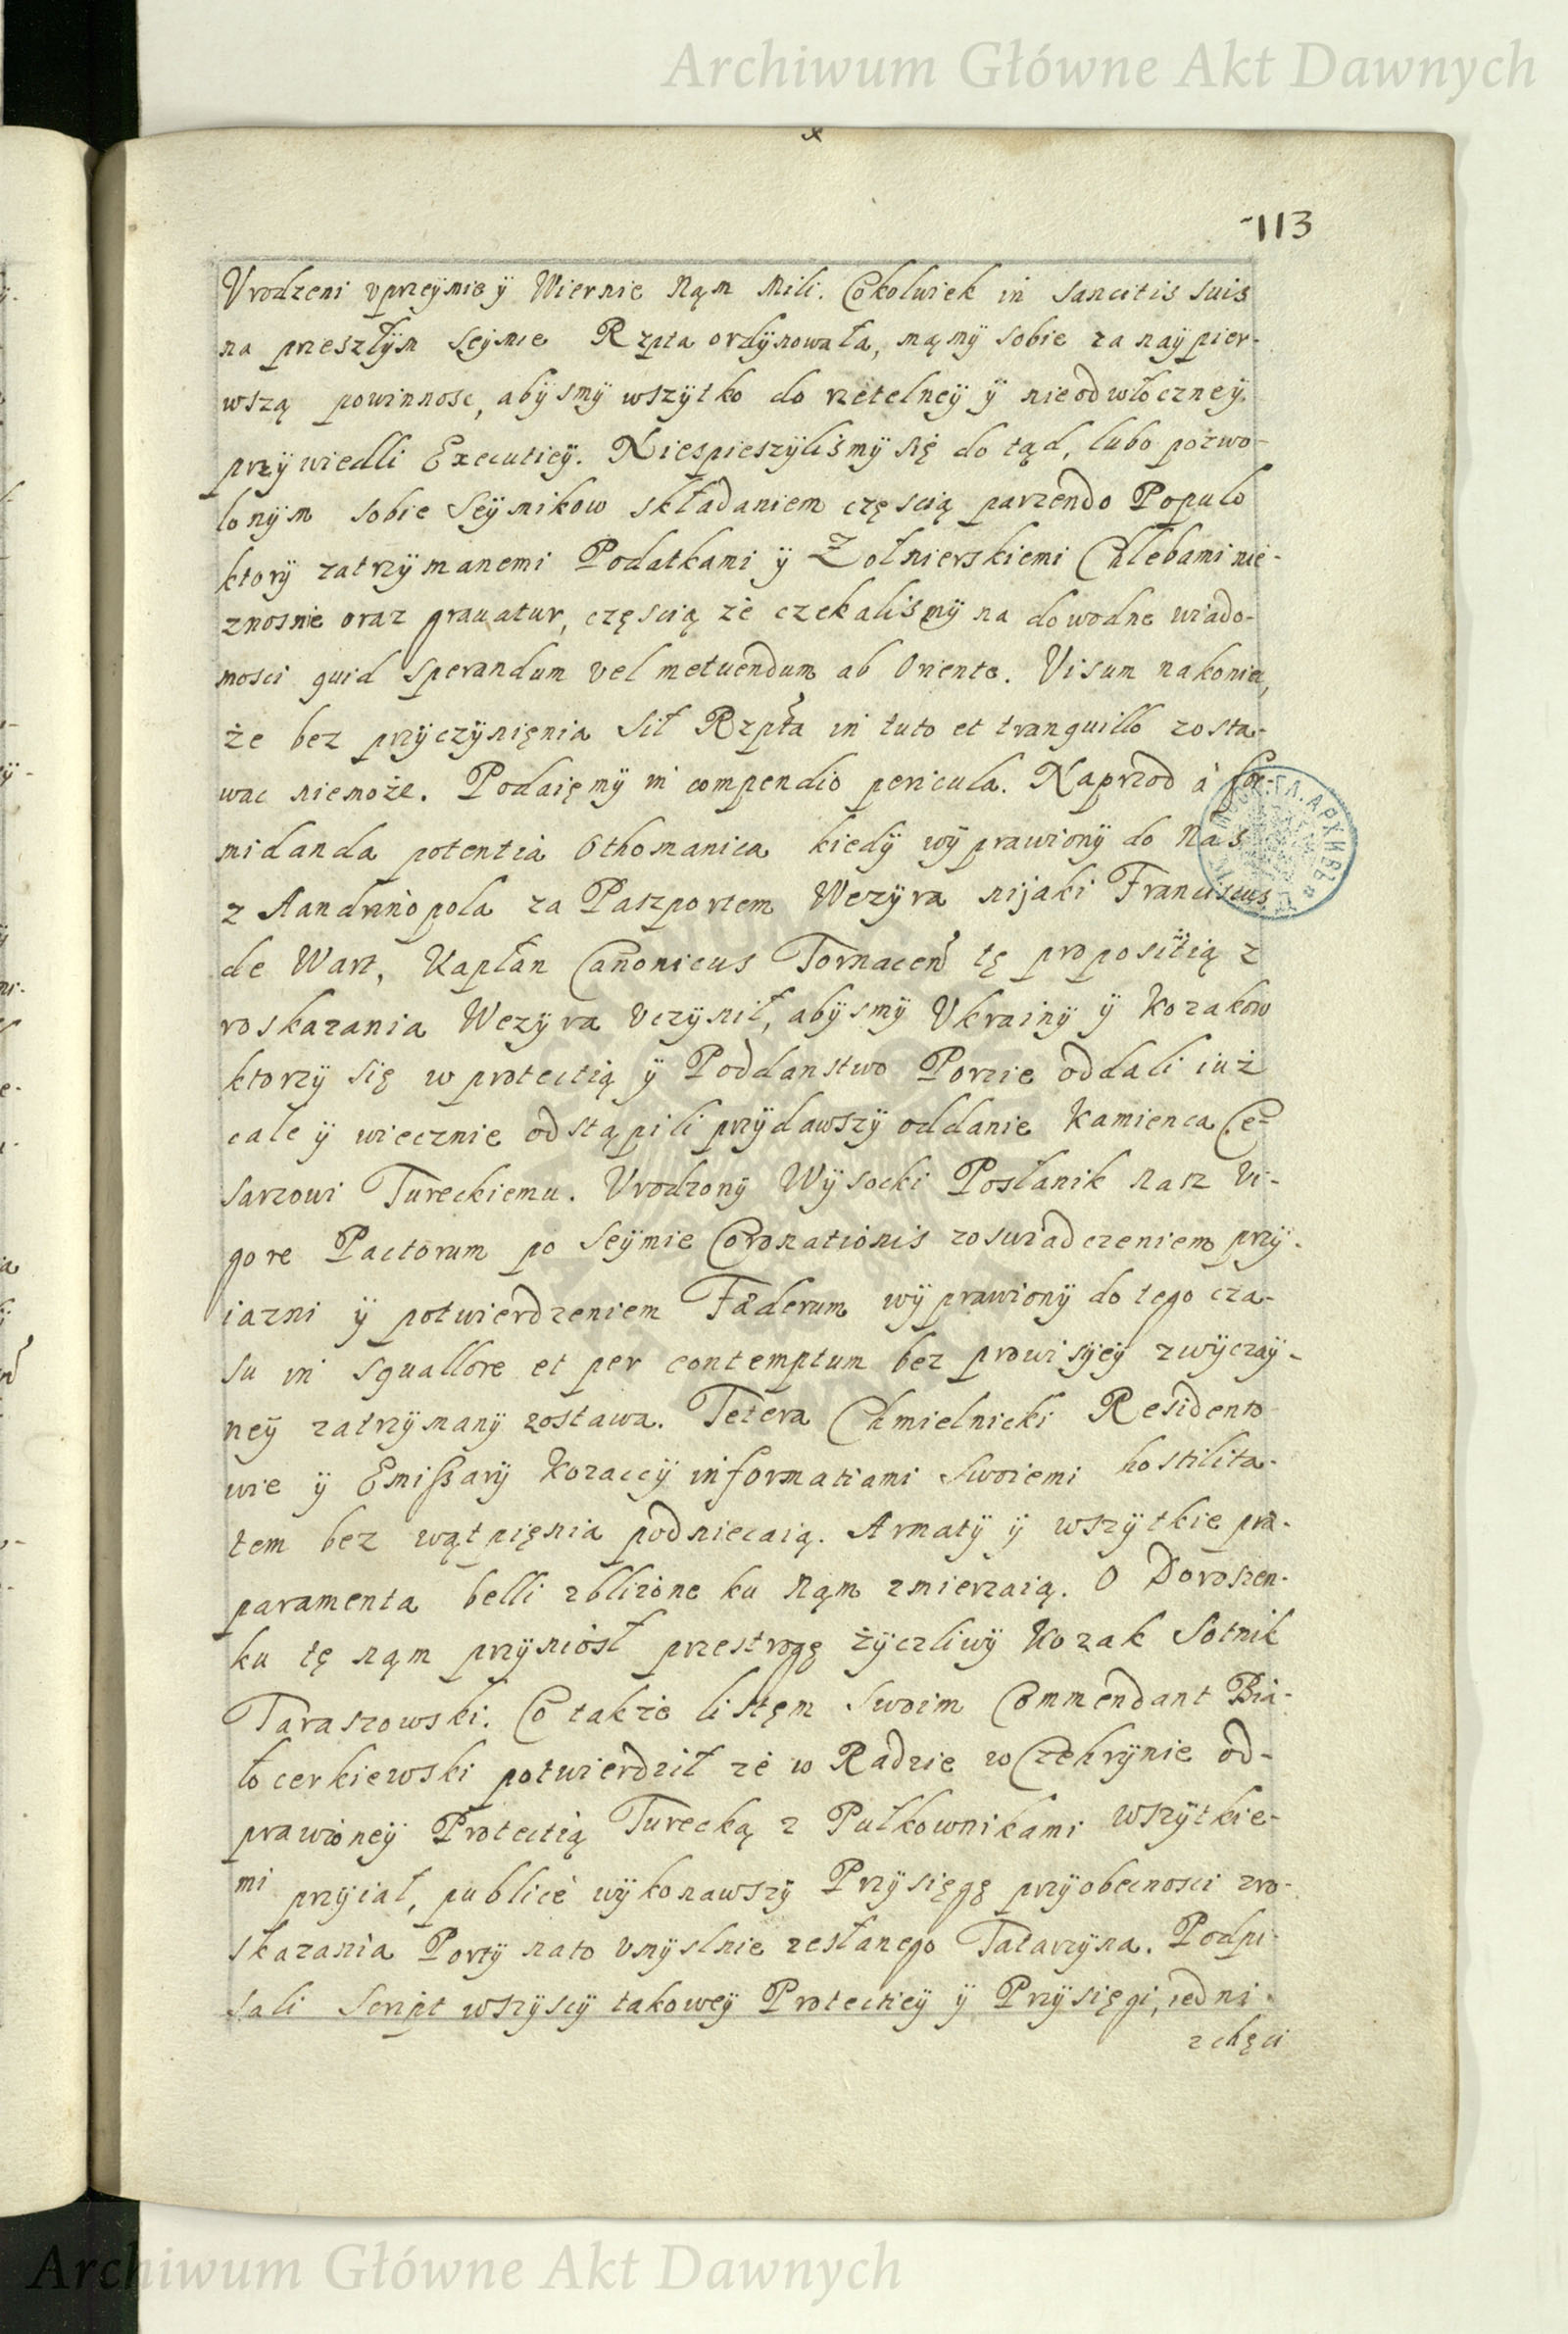 Archiwum Główne Akt Dawnych
113
Vrodzeni vprzeÿmie ÿ Wiernie Nąm Mili. Cokolwiek in sancitis suis
na przeszłÿm Seÿmie Rzpta ordÿnowała, mąmÿ sobie za naÿpier-
wszą powinnosc, abÿsmÿ wszÿtko do rzetelneÿ ÿ nieodwłoczneÿ
przÿwiedli Executieÿ. Niespieszÿlismÿ się do tąd, lubo pozwo-
lonÿm sobie Seÿmikow składaniem częscią parcendo Populo
ktorÿ zatrzÿmanemi Podatkami ÿ Żołnierskiemi Chlebami nie-
znosnie oraz grauatur, częscią że czekalismÿ na dowodne wiado-
mosci quid sperandum vel metuendum ab Oriente. Visum nakoniec,
że bez przÿczÿnięnia sił Rzpta in tuto et tranquillo zosta-
wac niemoże. Podaięmÿ in compendio pericula. Naprzod à for-
midanda potentia Othomanica kiedÿ wÿprawionÿ do Nas
z Aandrinopola za Paszportem Wezÿra nijaki Franciscus
de Warz, Kapłan Canonicus Tornacen tę propositią z
roskazania Wezÿra vczÿnił, abÿsmÿ Vkrainÿ ÿ Kozakow
ktorzÿ się w protectią ÿ Poddanstwo Porzie oddali iuż
cale ÿ wiecznie odstąpili przÿdawszÿ oddanie Kamienca Ce-
sarzowi Tureckiemu. Vrodzonÿ Wÿsocki Posłanik nasz vi-
gore Pactorum po Seÿmie Coronationis zoswiadczeniem przÿ-
iazni ÿ potwierdzeniem Fæderum wÿprawionÿ do tego cza-
su in squallore et per contemptum bez prowisÿeÿ zwÿczaÿ-
neÿ zatrzÿmanÿ zostawa. Tetera Chmielnicki Residento-
wie ÿ Emissarÿ Kozaccÿ informatiami swoiemi hostilita-
tem bez wątpięnia podniecaią. Armatÿ ÿ wszÿtkie præ-
paramenta belli zbliżone ku Nąm zmierzaią. O Doroszen-
ku tę nąm przÿniosł przestrogę żÿczliwÿ Kozak Sotnik
Taraszowski. Co także listęm swoim Commendant Bia-
łocerkiewski potwierdził że w Radzie w Czehrÿnie od-
prawioneÿ Protectią Turecką z Pułkownikami wszÿtkie-
mi przÿiał, publicè wÿkonawszÿ Przÿsięgę przÿobecnosci zro-
skazania Portÿ nato vmÿslnie zesłanego Tatarzÿna. Podpi-
sali Script wszÿscÿ takoweÿ Protectieÿ ÿ Przÿsięgi, iedni
z chęci
Archiwum Główne Akt Dawnych